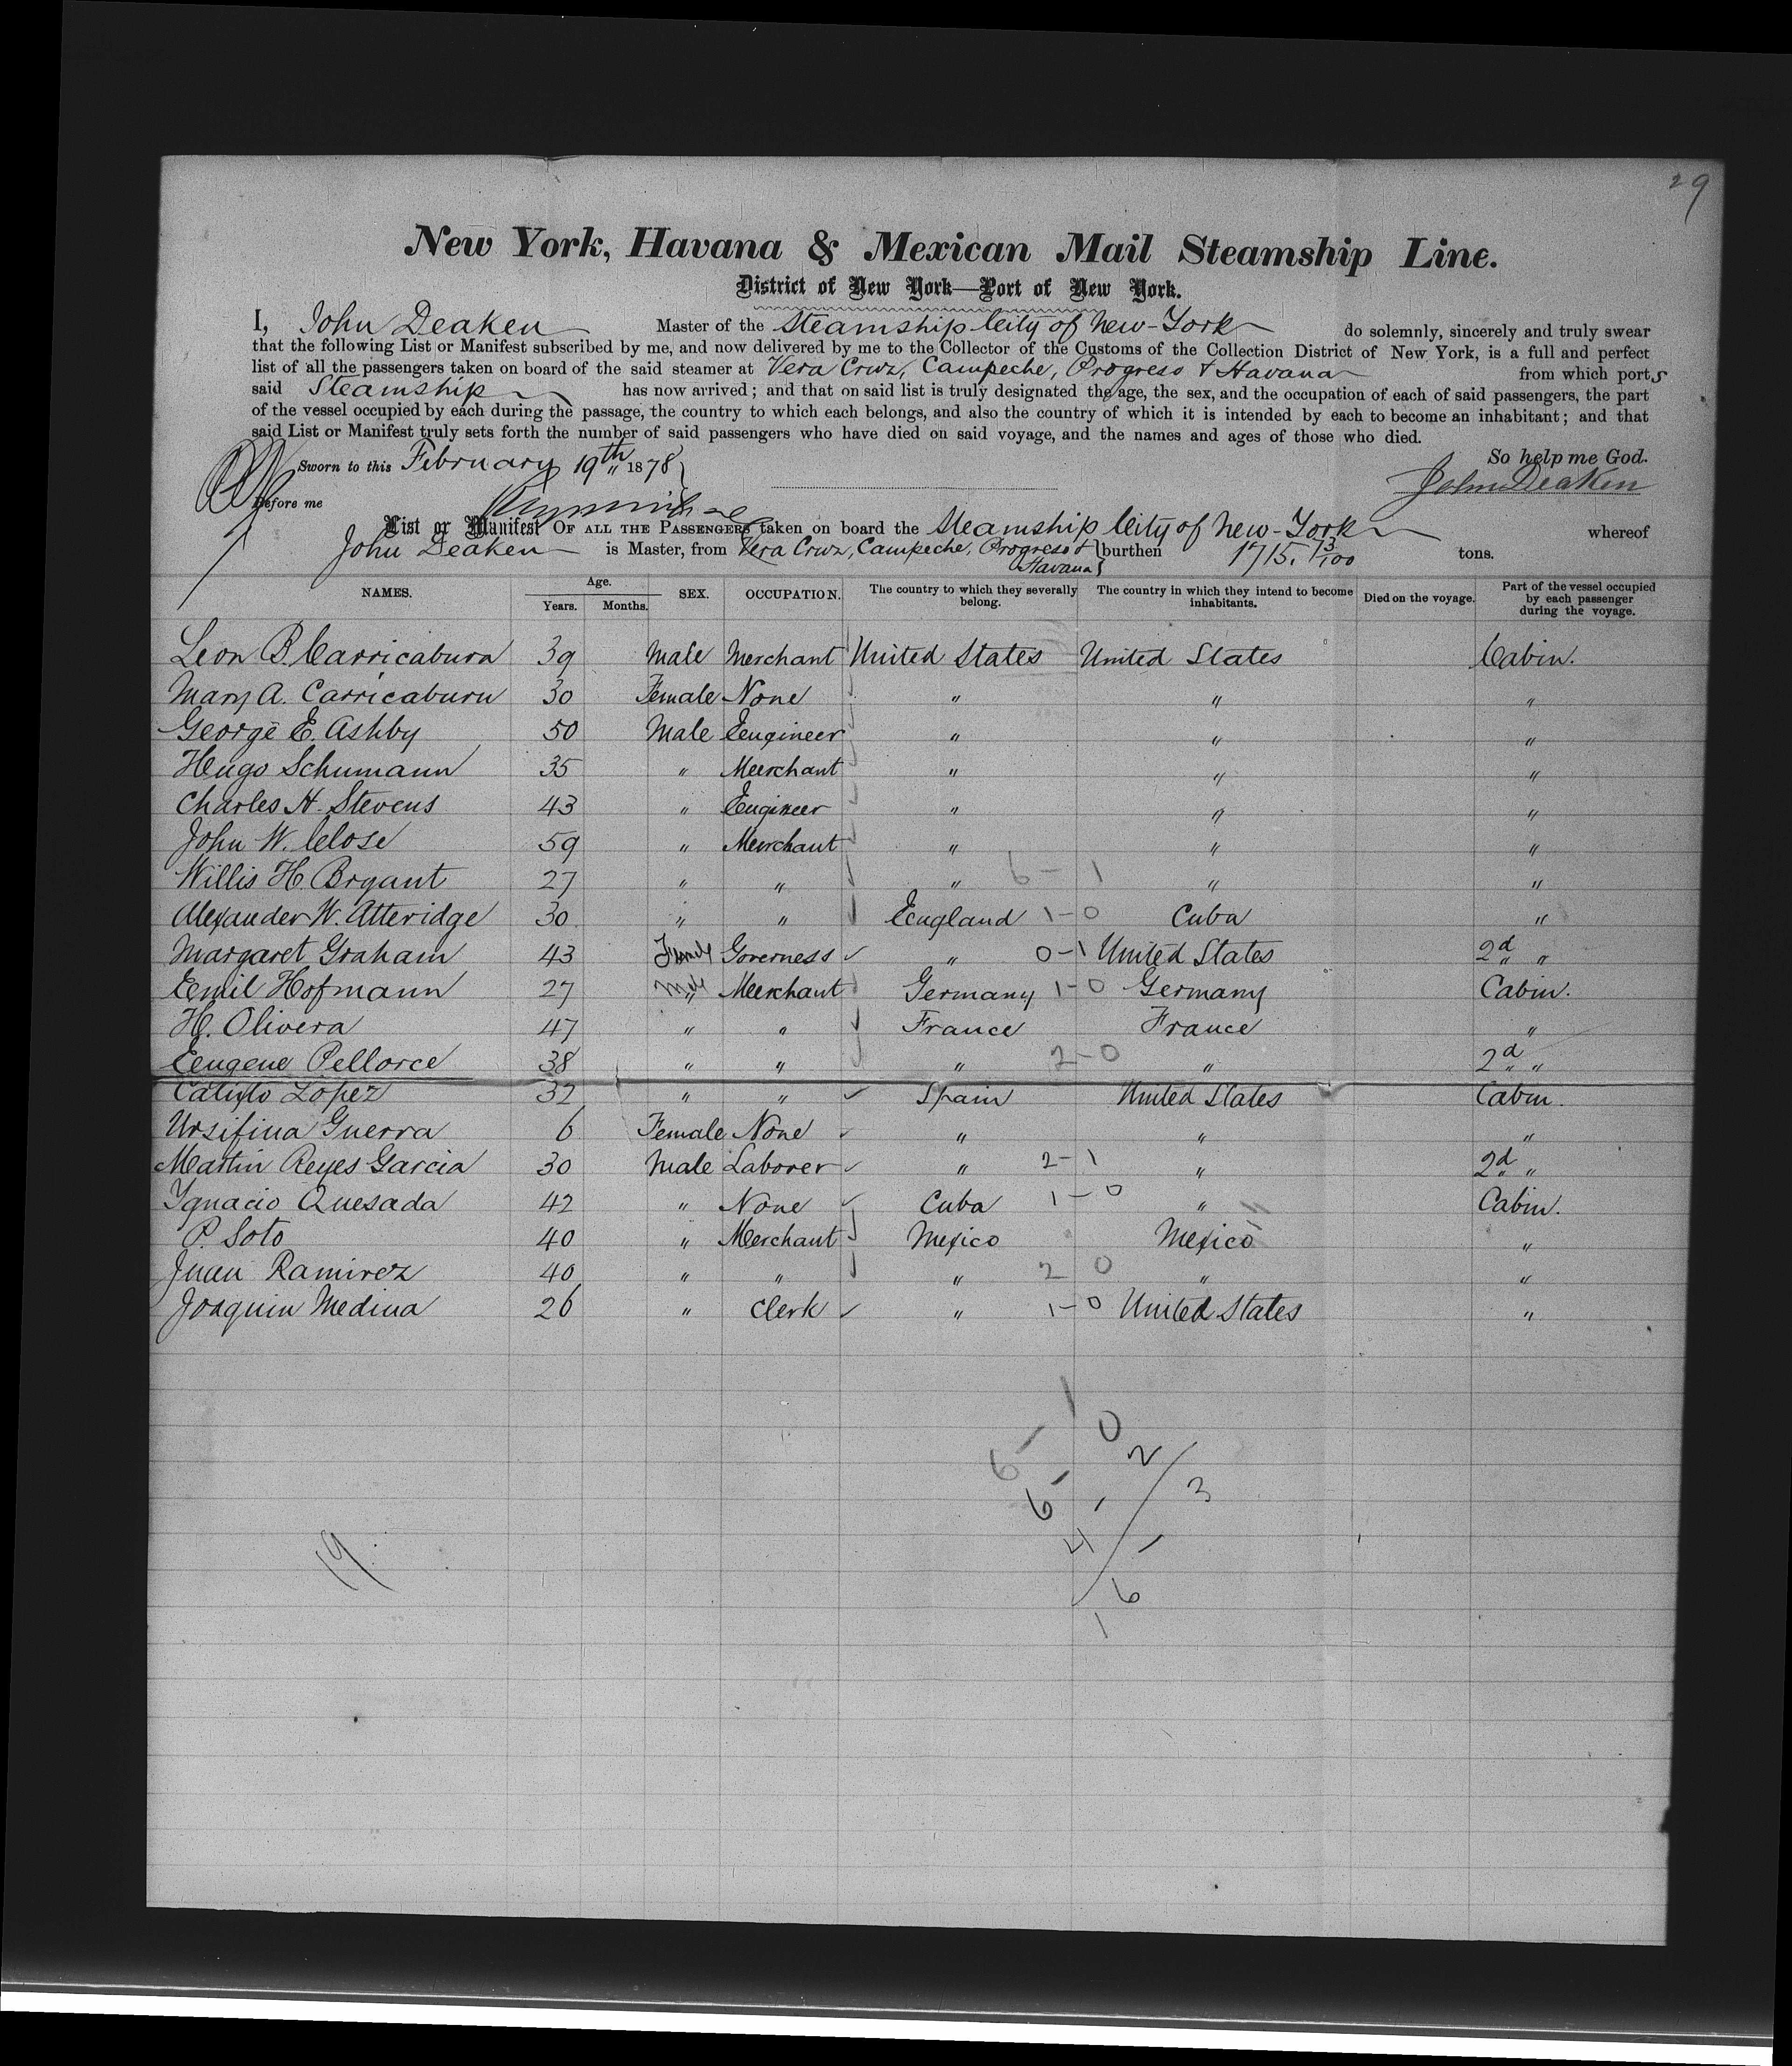 29
New York, Havana & Mexican Mail Steamship Line.
District of New York—Port of New York.
I, John Deaken Master of the Steamship City of New-York do solemnly, sincerely and truly swear
that the following List or Manifest subscribed by me, and now delivered by me to the Collector of the Customs of the Collection District of New York, is a full and perfect
list of all the passengers taken on board of the said steamer at Vera Cruz, Campeche, Progreso & Havana from which ports
said Steamship has now arrived; and that on said list is truly designated the age, the sex, and the occupation of each of said passengers, the part
of the vessel occupied by each during the passage, the country to which each belongs, and also the country of which it is intended by each to become an inhabitant; and that
said List or Manifest truly sets forth the number of said passengers who have died on said voyage, and the names and ages of those who died.
So help me God.
Sworn to this February 19th 1878
John Deaken
Before me
List or Manifest OF ALL THE PASSENGERS taken on board the Steamship City of New-York whereof
John Deaken is Master, from Vera Cruz, Campeche, Progreso & Havana burthen 1715. 73/100 tons.
NAMES. Age. Years. Months. SEX. OCCUPATION. The country to which they severally belong. The country in which they intend to become inhabitants. Died on the voyage. Part of the vessel occupied by each passenger during the voyage.
Leon B. Carricaburu 39 Male Merchant United States United States Cabin.
Mary A. Carricaburu 30 Female None " " "
George E. Ashby 50 Male Engineer " " "
Hugo Schumann 35 " Merchant " " "
Charles H. Stevens 43 " Engineer " " "
John W. Close 59 " Merchant " " "
Willis H. Bryant 27 " " " 6-1 " "
Alexander W. Atteridge 30 " " England 1-0 Cuba "
Margaret Graham 43 Female Governess " 0-1 United States 2d "
Emil Hofmann 27 Male Merchant Germany 1-0 Germany Cabin.
H. Olivera 47 " " France France "
Eugene Pellorce 38 " " " 2-0 " 2d "
Calixto Lopez 32 " " Spain United States Cabin.
Ursifina Guerra 6 Female None " " "
Martin Reyes Garcia 30 Male Laborer " 2-1 " 2d "
Ygnacio Quesada 42 " None Cuba 1-0 " Cabin.
P. Soto 40 " Merchant Mexico Mexico "
Juan Ramirez 40 " " " 2 0 " "
Joaquin Medina 26 " Clerk " 1-0 United States "
6-1
6-0
4-2
16/3
19